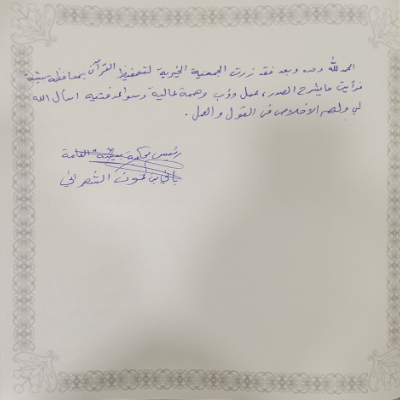 الحمد لله وحده وبعد فقد زرت الجمعية الخيرية لتحفيظ القرآن بمحافظة
فرأيت ما يشرح الصدور، عمل دؤب وهمة عالية وسواعد فتية اسأل الله
لي ولهم الاخلاص في القول والعمل .
رئيس محكمة العامة
بن عون الشهراني